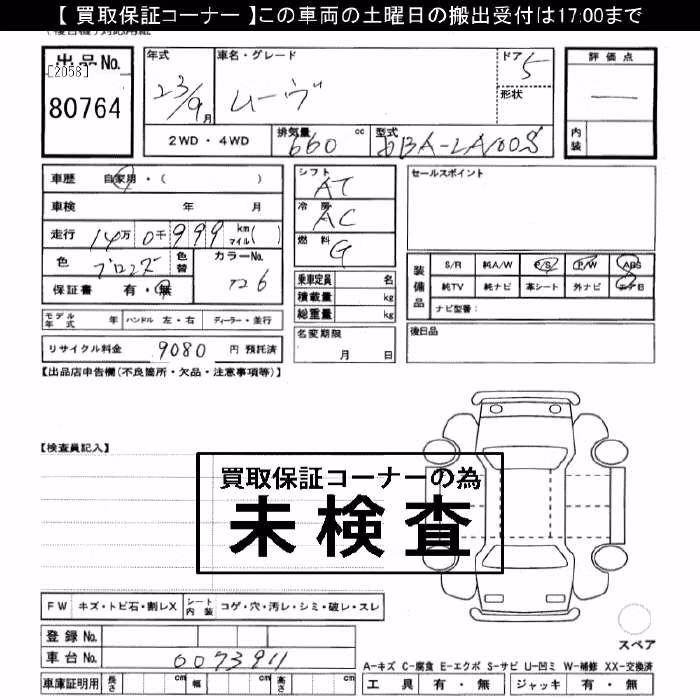 【 買取保証コーナー 】この車両の土曜日の搬出受付は17:00まで
出品No.
[2058]
80764
年式
23/9月
車名・グレード
ムーヴ
ドア
5
形状
2WD ・ 4WD
排気量
660 cc
型式
DBA-LA100S
評価点
―
内装
車歴 自家用 ・ ( )
車検 年 月
走行 14万 0千 9 9 9 km マイル( )
色 ブロンズ 色替
カラーNo.
T26
保証書 有 ・ 無
モデル年式 年 ハンドル 左・右 ディーラー・並行
リサイクル料金 9080 円 預託済
シフト
AT
冷房
AC
燃料
G
乗車定員 名
積載量 kg
総重量 kg
名変期限
月 日
セールスポイント
装備品
S/R 純A/W P/S P/W ABS
純TV 純ナビ 革シート 外ナビ エアB
ナビ型番：
後日品
【出品店申告欄(不良箇所・欠品・注意事項等)】
【検査員記入】
買取保証コーナーの為
未検査
FW キズ・トビ石・割レX
シート内装 コゲ・穴・汚レ・シミ・破レ・スレ
登録No.
車台No. 0073911
車庫証明用 長さ cm 幅 cm 高さ cm
スペア
A-キズ C-腐食 E-エクボ S-サビ U-凹ミ W-補修 XX-交換済
工具 有 ・ 無 ジャッキ 有 ・ 無